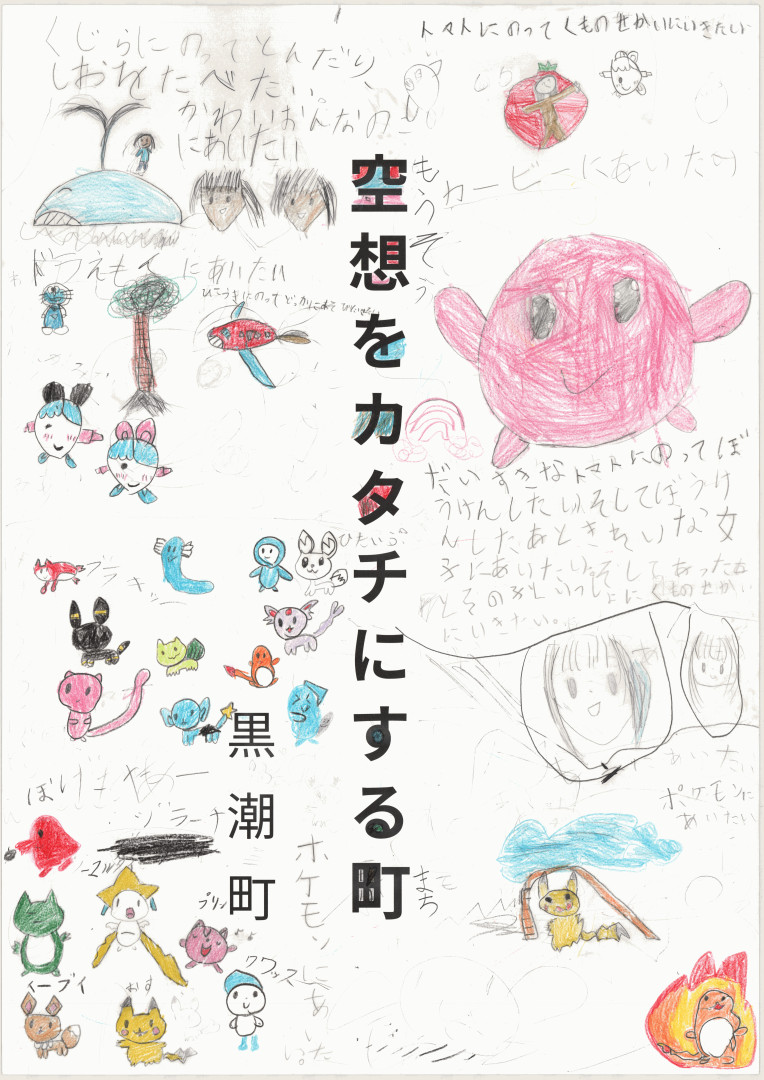 くじらにのってとんだり、
しおをたべたい。
かわいおんなのこ
にあいたい
トマトにのってくものせかいにいきたい
カービーにあいたい
もうそう
空想をカタチにする町
まち
黒潮町
ドラえもんにあいたい
ひこうきにのって
だいすきなトマトにのってぼ
うけんしたい。そしてぼうけ
んしたあときれいな女
子にあいたい。そしてあったあ
とその子といっしょにくものせかい
にいきたい。
ブラッキー
ジラーチ
プリン
イーブイ
クワッス
ポケモンにあいたい
ポケモンに
あいたい